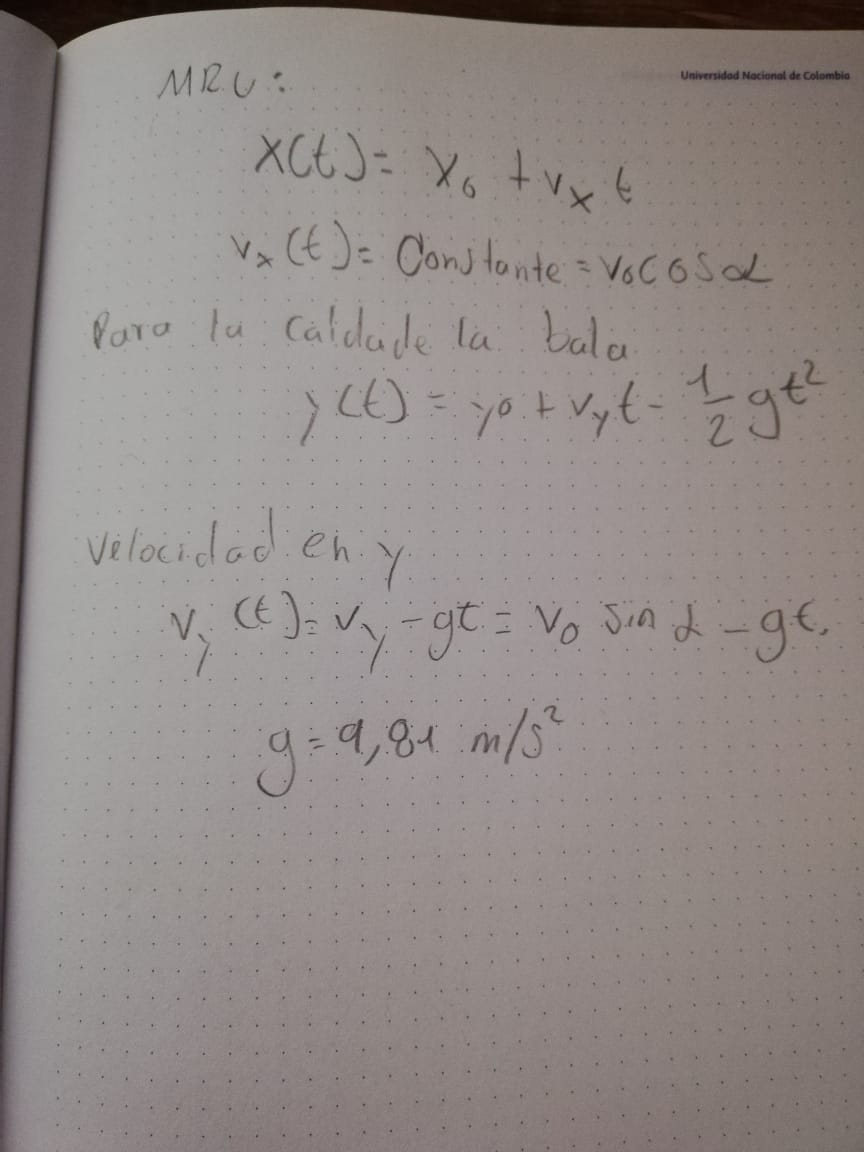 Universidad Nacional de Colombia
MRU:
x(t) = x₀ + vₓ t
vₓ(t) = Constante = v₀ cos α
Para la caida de la bala
y(t) = y₀ + v_y t - 1/2 gt²
Velocidad en y
v_y (t) = v_y - gt = v₀ sin α - gt.
g = 9,81 m/s²